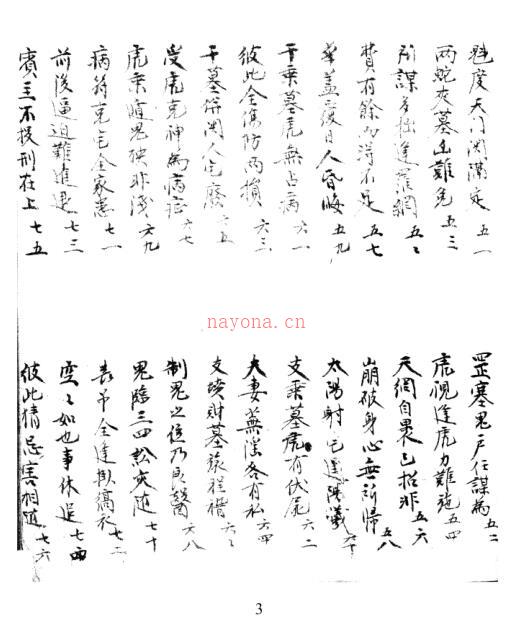 魁度天门関隔定 五一
罡塞鬼户任謀為 五二
两蛇夹墓凶難免 五三
虎視逢虎力難施 五四
所謀多拙逢羅網 五五
天網自裹己招非 五六
費有餘而得不足 五七
崩破身心無所歸 五八
華盖覆日人昏晦 五九
太陽射宅 六十
干乗墓虎無占病 六一
支乗墓虎有伏屍 六二
彼此全傷防两損 六三
夫妻蕪淫各有私 六四
干墓併関人宅廢 六五
支墳財墓旅程稽 六六
受虎克神為病症 六七
制鬼之位乃良醫 六八
虎乗遁鬼殃非浅 六九
鬼臨三四訟灾随 七十
病符克宅全家患 七一
丧吊全逢掛縞衣 七二
前後逼迫難進退 七三
空々如也事休追 七四
賓主不投刑在上 七五
彼此猜忌害相随 七六
nayona.cn
3